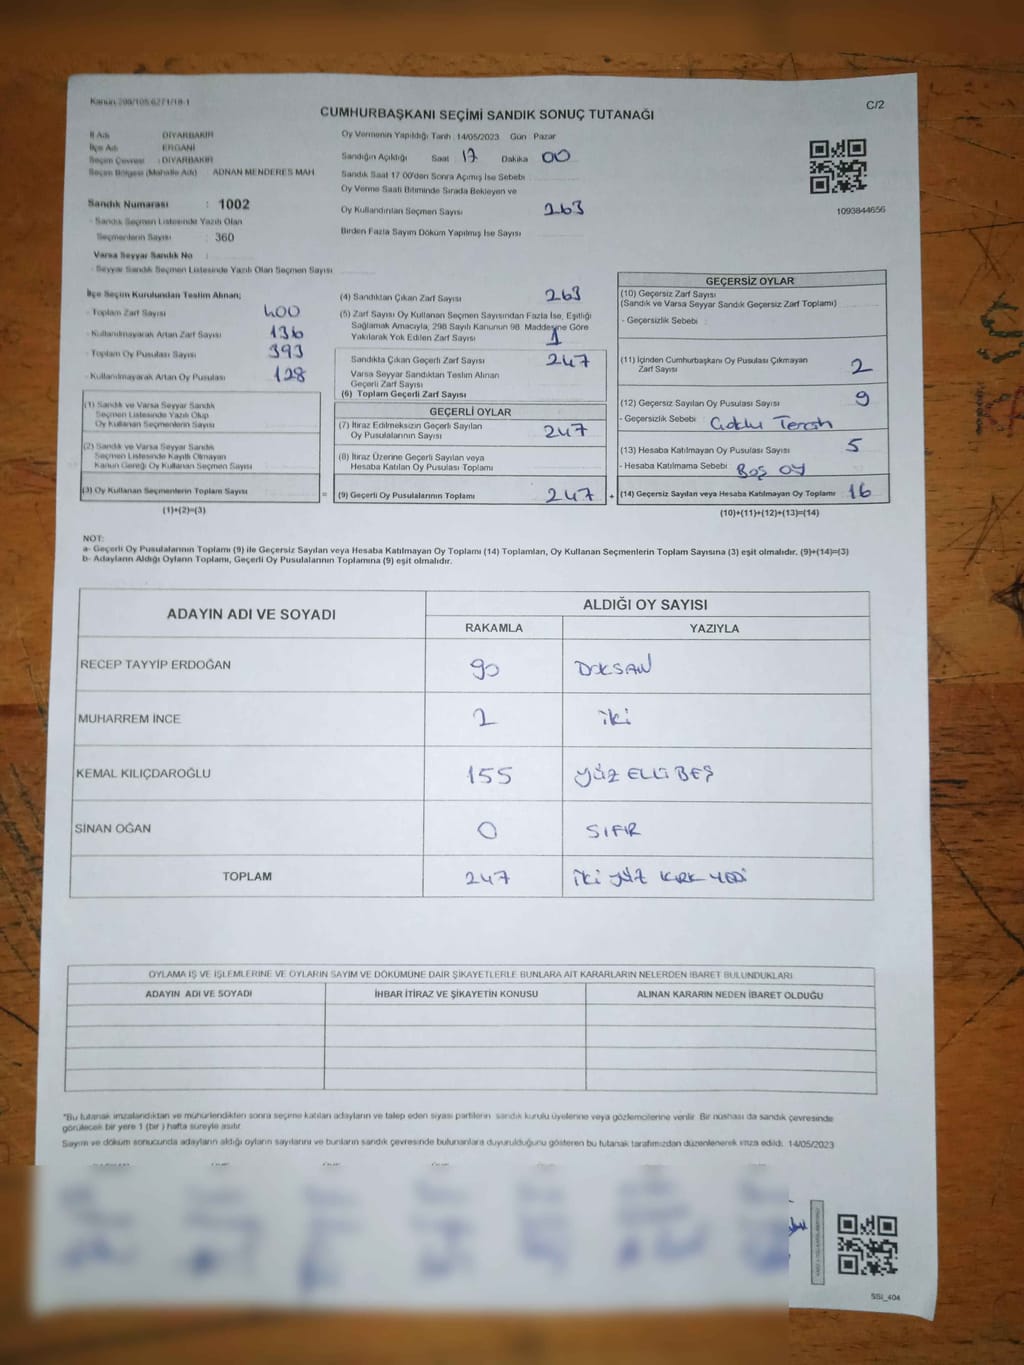 Kanun 298/105.6271/18-1
C/2
CUMHURBAŞKANI SEÇİMİ SANDIK SONUÇ TUTANAĞI
İl Adı DİYARBAKIR
İlçe Adı ERGANİ
Seçim Çevresi : DİYARBAKIR
Seçim Bölgesi (Mahalle Adı) ADNAN MENDERES MAH
Sandık Numarası : 1002
- Sandık Seçmen Listesinde Yazılı Olan
Seçmenlerin Sayısı : 360
Varsa Seyyar Sandık No :
- Seyyar Sandık Seçmen Listesinde Yazılı Olan Seçmen Sayısı
Oy Vermenin Yapıldığı Tarih :14/05/2023 Gün Pazar
Sandığın Açıldığı Saat 17 Dakika 00
Sandık Saat 17 00'den Sonra Açımış İse Sebebi
Oy Verme Saati Bitiminde Sırada Bekleyen ve
Oy Kullandırılan Seçmen Sayısı 263
Birden Fazla Sayım Döküm Yapılmış İse Sayısı
1093844656
İlçe Seçim Kurulundan Teslim Alınan;
- Toplam Zarf Sayısı 400
- Kullanılmayarak Artan Zarf Sayısı 136
- Toplam Oy Pusulası Sayısı 393
- Kullanılmayarak Artan Oy Pusulası 128
(1) Sandık ve Varsa Seyyar Sandık
Seçmen Listesinde Yazılı Olup
Oy Kullanan Seçmenlerin Sayısı
(2) Sandık ve Varsa Seyyar Sandık
Seçmen Listesinde Kayıtlı Olmayan
Kanun Gereği Oy Kullanan Seçmen Sayısı
(3) Oy Kullanan Seçmenlerin Toplam Sayısı
(1)+(2)=(3)
(4) Sandıktan Çıkan Zarf Sayısı 263
(5) Zarf Sayısı Oy Kullanan Seçmen Sayısından Fazla İse, Eşitliği
Sağlamak Amacıyla, 298 Sayılı Kanunun 98. Maddesine Göre
Yakılarak Yok Edilen Zarf Sayısı 1
Sandıkta Çıkan Geçerli Zarf Sayısı 247
Varsa Seyyar Sandıktan Teslim Alınan
Geçerli Zarf Sayısı
(6) Toplam Geçerli Zarf Sayısı
GEÇERLİ OYLAR
(7) İtiraz Edilmeksizin Geçerli Sayılan
Oy Pusulalarının Sayısı 247
(8) İtiraz Üzerine Geçerli Sayılan veya
Hesaba Katılan Oy Pusulası Toplamı
= (9) Geçerli Oy Pusulalarının Toplamı 247 +
GEÇERSİZ OYLAR
(10) Geçersiz Zarf Sayısı
(Sandık ve Varsa Seyyar Sandık Geçersiz Zarf Toplamı)
- Geçersizlik Sebebi :
(11) İçinden Cumhurbaşkanı Oy Pusulası Çıkmayan
Zarf Sayısı 2
(12) Geçersiz Sayılan Oy Pusulası Sayısı 9
- Geçersizlik Sebebi :
(13) Hesaba Katılmayan Oy Pusulası Sayısı 5
- Hesaba Katılmama Sebebi : Boş oy
(14) Geçersiz Sayılan veya Hesaba Katılmayan Oy Toplamı 16
(10)+(11)+(12)+(13)=(14)
NOT:
a- Geçerli Oy Pusulalarının Toplamı (9) ile Geçersiz Sayılan veya Hesaba Katılmayan Oy Toplamı (14) Toplamları, Oy Kullanan Seçmenlerin Toplam Sayısına (3) eşit olmalıdır. (9)+(14)=(3)
b- Adayların Aldığı Oyların Toplamı, Geçerli Oy Pusulalarının Toplamına (9) eşit olmalıdır.
ADAYIN ADI VE SOYADI ALDIĞI OY SAYISI
RAKAMLA YAZIYLA
RECEP TAYYİP ERDOĞAN 90 DOKSAN
MUHARREM İNCE 2 iki
KEMAL KILIÇDAROĞLU 155 YÜZ ELLİ BEŞ
SİNAN OĞAN 0 SIFIR
TOPLAM 247 iki YÜZ KIRK YEDİ
OYLAMA İŞ VE İŞLEMLERİNE VE OYLARIN SAYIM VE DÖKÜMÜNE DAİR ŞİKAYETLERLE BUNLARA AİT KARARLARIN NELERDEN İBARET BULUNDUKLARI
ADAYIN ADI VE SOYADI İHBAR İTİRAZ VE ŞİKAYETİN KONUSU ALINAN KARARIN NEDEN İBARET OLDUĞU
"Bu tutanak imzalandıktan ve mühürlendikten sonra seçime katılan adayların ve talep eden siyasi partilerin sandık kurulu üyelerine veya gözlemcilerine verilir. Bir nüshası da sandık çevresinde
görülecek bir yere 1 (bir) hafta süreyle asılır.
Sayım ve döküm sonucunda adayların aldığı oyların sayılarını ve bunların sandık çevresinde bulunanlara duyurulduğunu gösteren bu tutanak tarafımızdan düzenlenerek imza edildi. 14/05/2023
SSİ_404